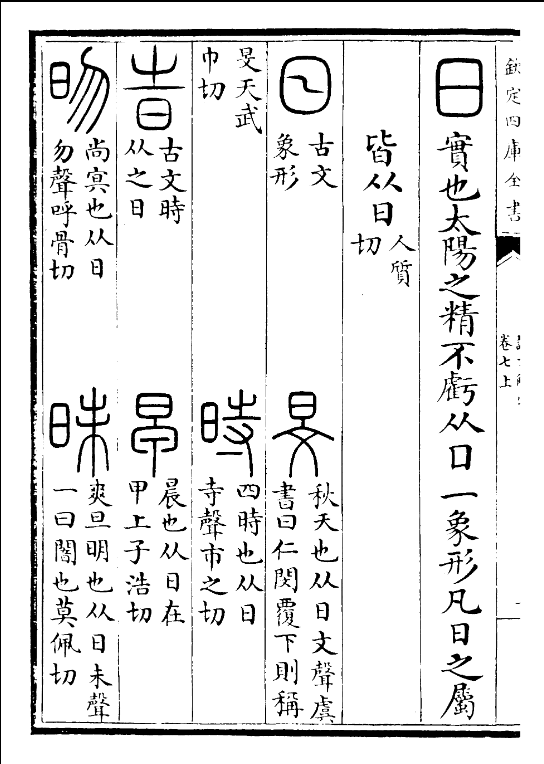 欽定四庫全書
卷七上
日實也太陽之精不虧从口一象形凡日之屬
皆从日
人質
切
日
古文
象形
旻
秋天也从日文聲虞
書曰仁閔覆下則稱
旻天武
巾切
時
四時也从日
寺聲市之切
旹
古文時
从之日
早
晨也从日在
甲上子浩切
昒
尚㝠也从日
勿聲呼骨切
昧
爽旦明也从日未聲
一曰闇也莫佩切